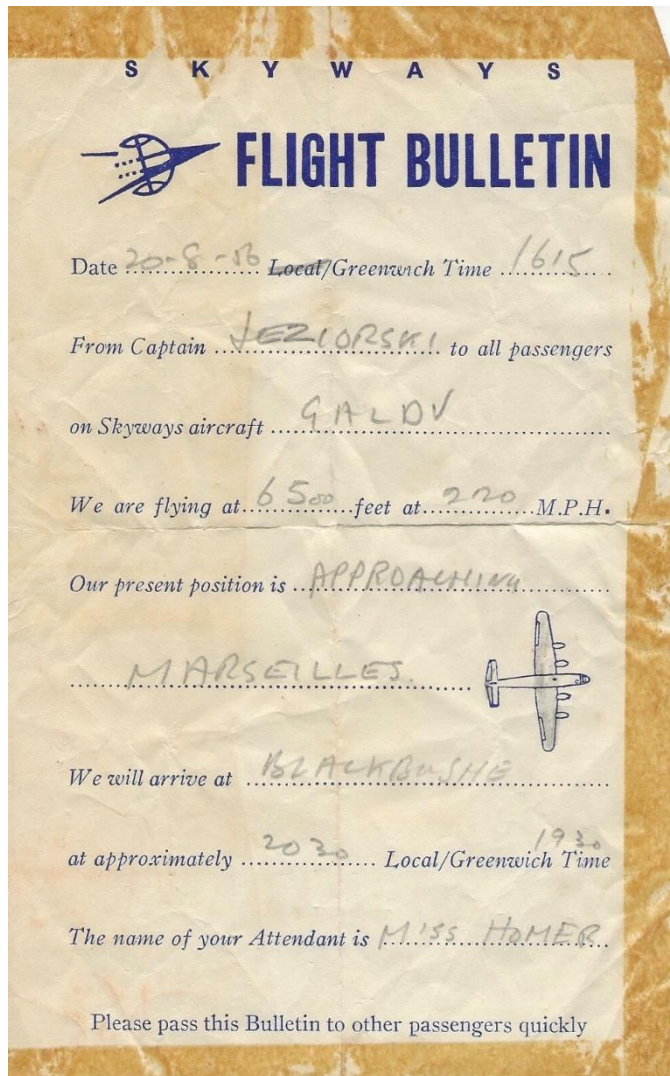 SKYWAYS
FLIGHT BULLETIN
Date 20-8-56 Local/Greenwich Time 1615
From Captain JEZIORSKI to all passengers
on Skyways aircraft GALDV
We are flying at 6500 feet at 220 M.P.H.
Our present position is APPROACHING
MARSEILLES.
We will arrive at BLACKBUSHE
at approximately 2030 Local/Greenwich Time 1930
The name of your Attendant is MISS HOMER
Please pass this Bulletin to other passengers quickly